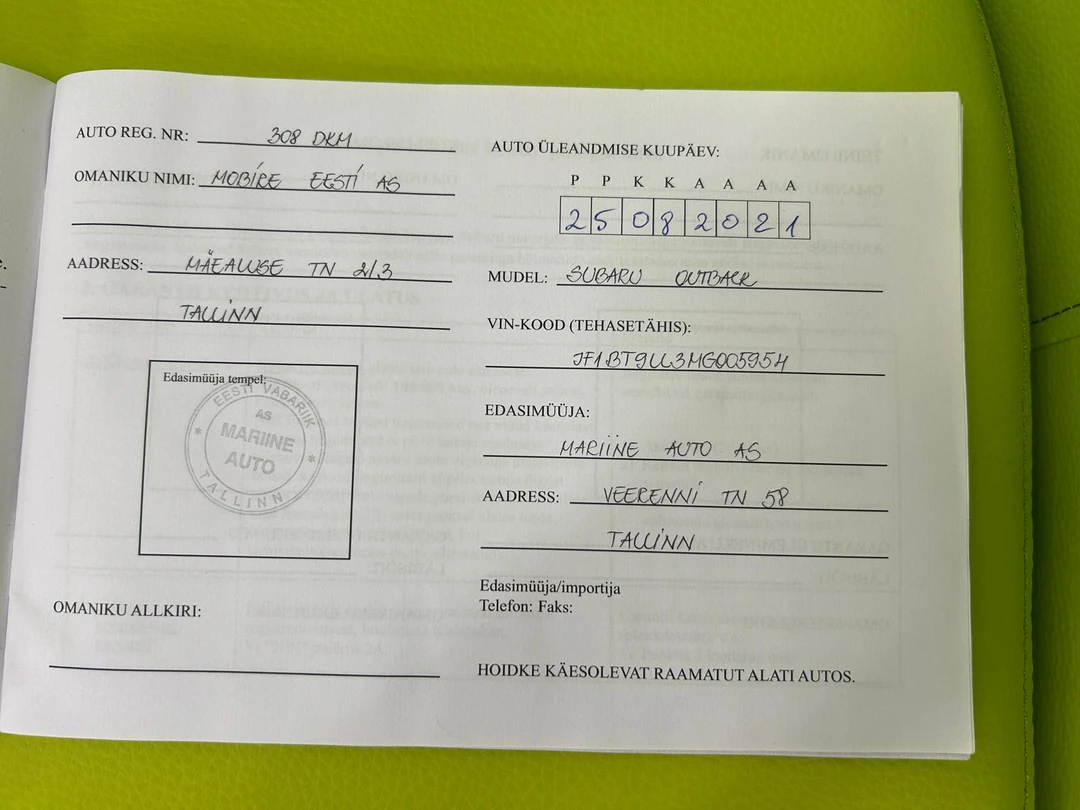 AUTO REG. NR: 308 DKM
OMANIKU NIMI: MOBIRE EESTI AS
AADRESS: MÄEALUSE TN 2/3
TALLINN
Edasimüüja tempel:
EESTI VABARIIK
AS
MARIINE
AUTO
TALLINN
OMANIKU ALLKIRI:
AUTO ÜLEANDMISE KUUPÄEV:
P P K K A A A A
2 5 0 8 2 0 2 1
MUDEL: SUBARU OUTBACK
VIN-KOOD (TEHASETÄHIS):
JF1BT9LL3MG005954
EDASIMÜÜJA:
MARIINE AUTO AS
AADRESS: VEERENNI TN 58
TALLINN
Edasimüüja/importija
Telefon: Faks:
HOIDKE KÄESOLEVAT RAAMATUT ALATI AUTOS.